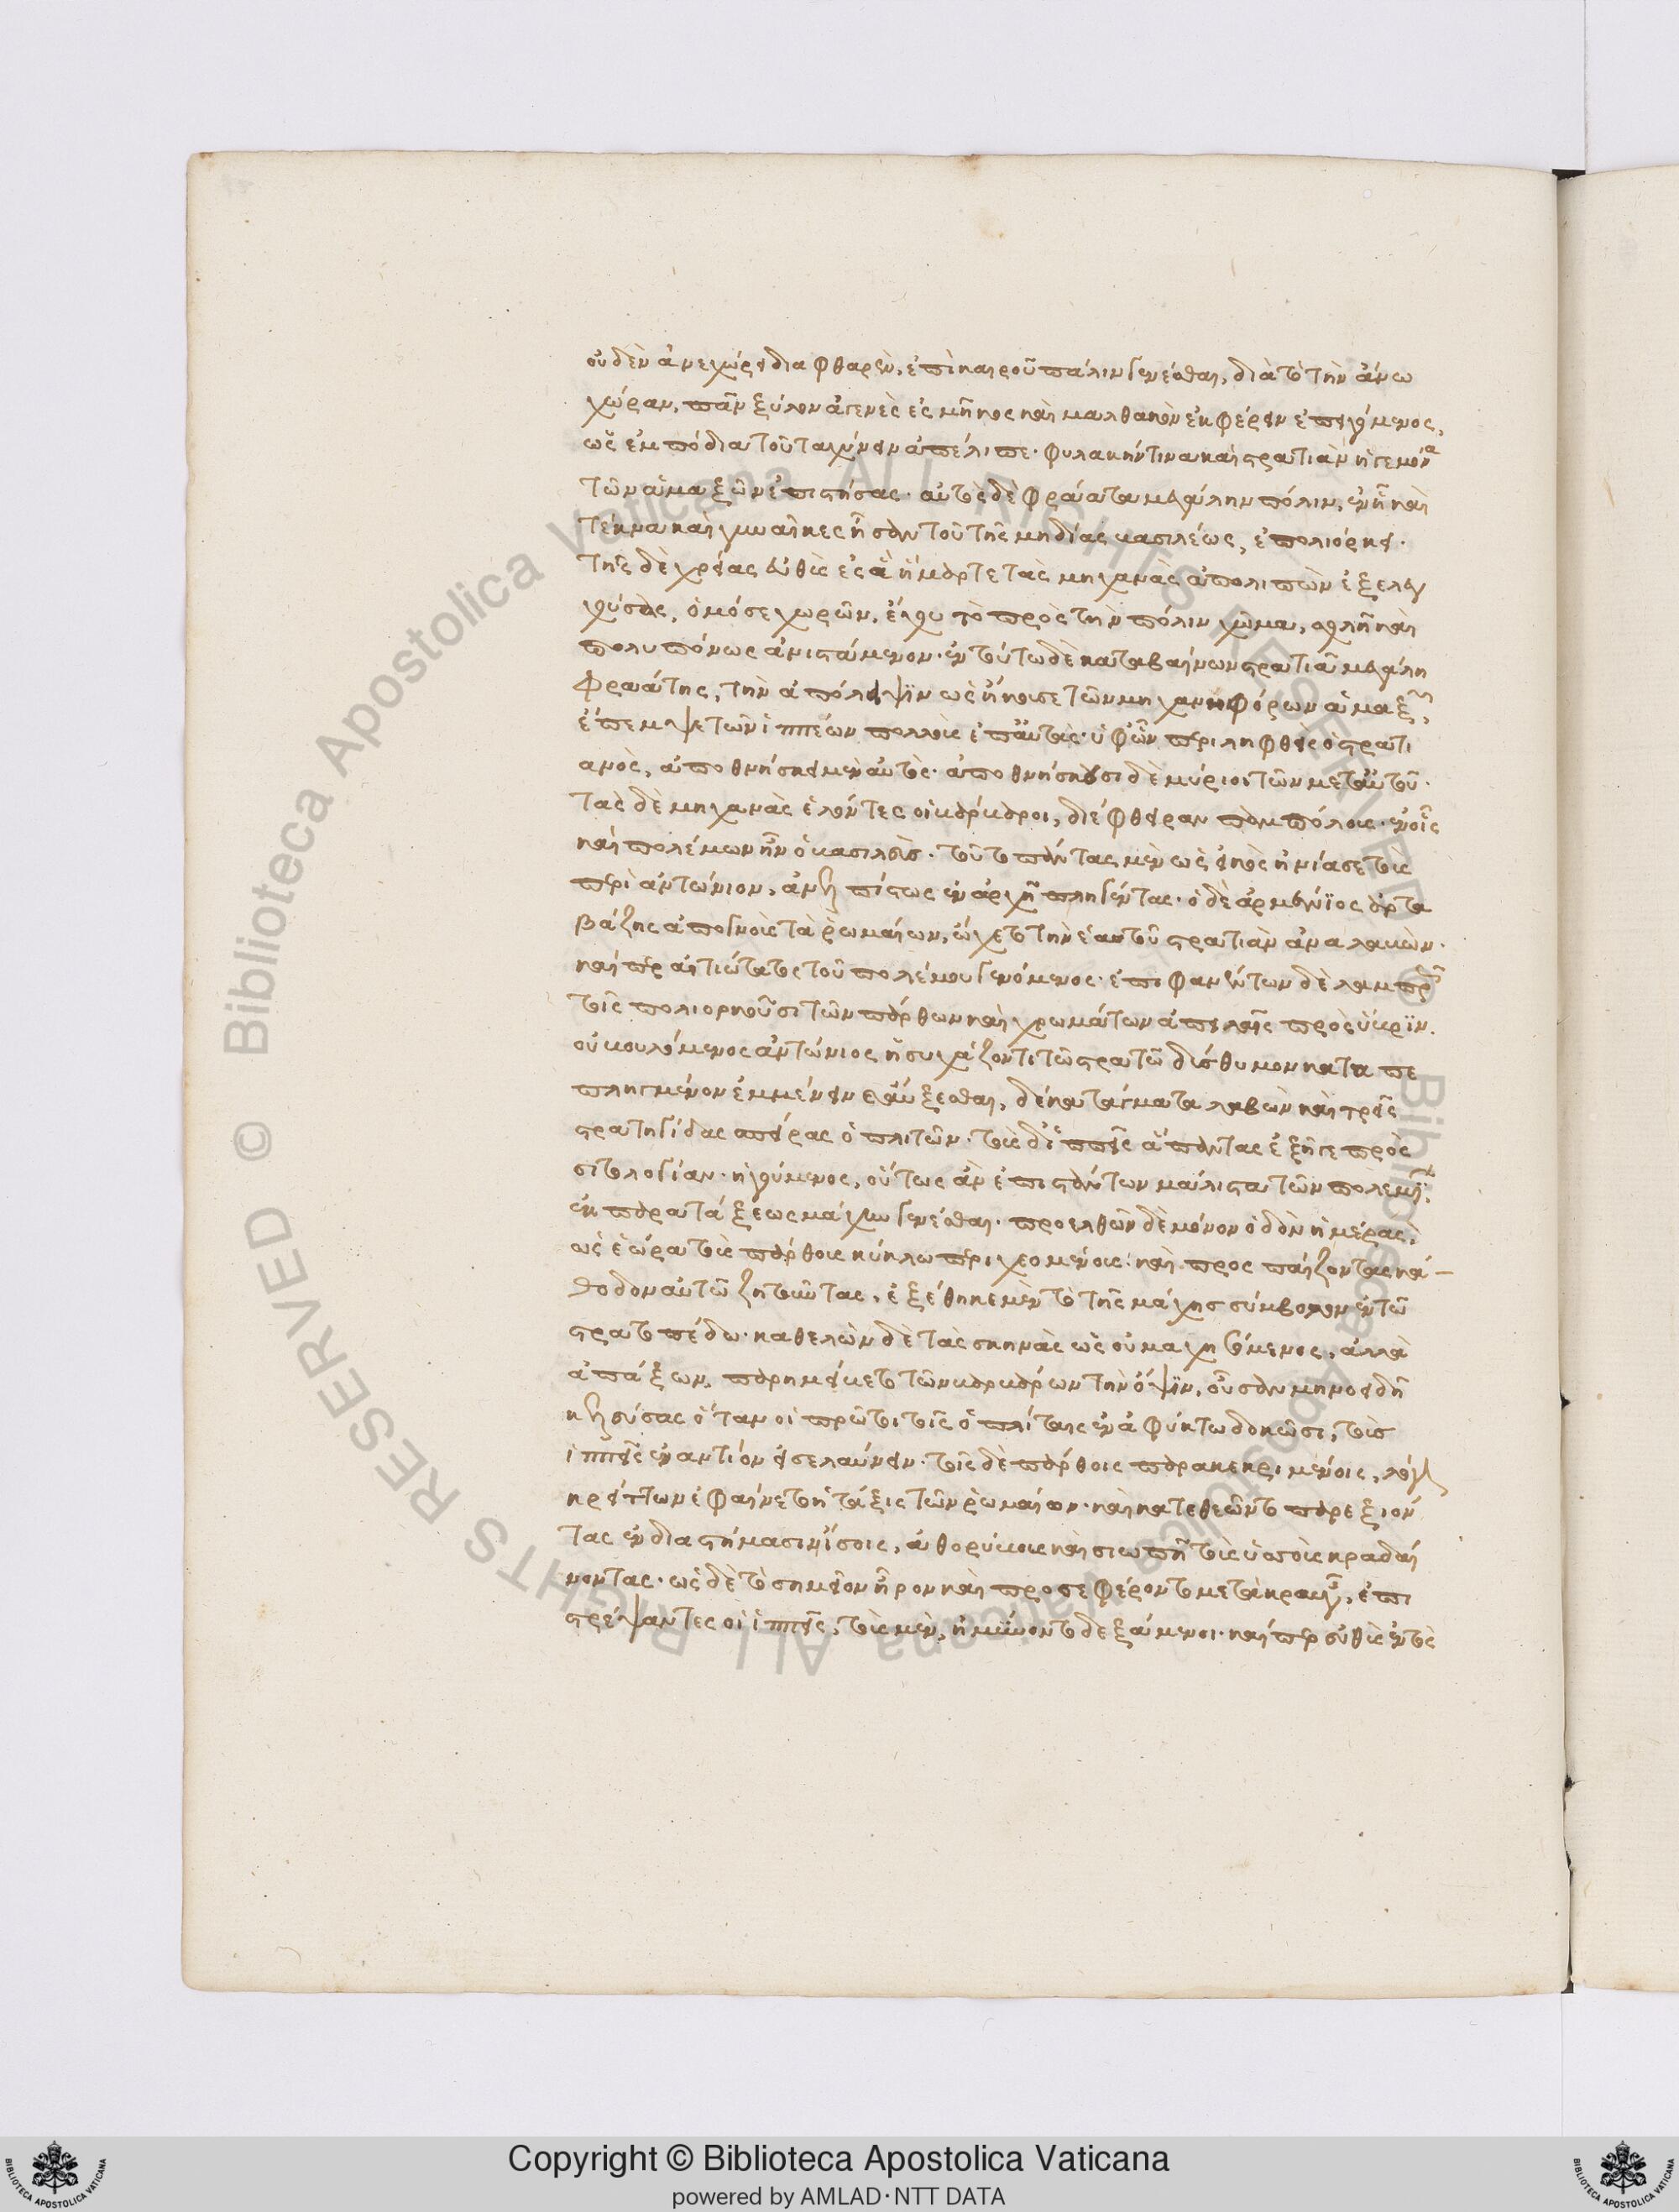 οὐδὲν ἀνεχώρει διαφθαρὲν, ἐπὶ καιροῦ πάλιν γενέσθαι, διὰ τὸ τὴν ἄνω
χώραν, πᾶν ξύλον ἀγενὲς ἐς μῆκος καὶ μαλθακὸν ἐκφέρειν ἐπειγόμενος,
ὡς ἐμπόδια τοῦ ταχύνειν ἀπέλιπε· φυλακήν τινα καὶ στρατιὰν ἡγεμόνα
τῶν ἁμαξῶν ἐπιστήσας· αὐτὸς δὲ φράατα μεγάλην πόλιν, ἐν ᾗ καὶ
τέκνα καὶ γυναῖκες ἦσαν τοῦ τῆς μηδίας βασιλέως, ἐπολιόρκει·
τῆς δὲ χρείας εὐθὺς ἐς ἃ ἥμαρτε τὰς μηχανὰς ἀπολιπὼν ἐξελεγ
χούσης, ὁμόσε χωρῶν, ἔχου τὸ πρὸς τὴν πόλιν χῶμα, σχολῇ καὶ
πολυπόνως ἀνιστάμενον· ἐν τούτω δὲ καταβαίνων στρατιᾶ μεγάλη
φραάτης, τὴν ἀπόλειψϊν ὡς ἤκουσε τῶν μηχανοφόρων ἁμαξῶν,
ἔπεμψε τῶν ἱππέων πολλοὺς ἐπ' αὐτάς· ὑφ' ὧν περιληφθεὶς ὁ στρατι
ανὸς, ἀποθνήσκει μὲν αὐτὸς· ἀποθνήσκουσι δὲ μύριοι τῶν μετ' αὐτοῦ·
τὰς δὲ μηχανὰς ἑλόντες οἱ βάρβαροι, διέφθειραν παμπόλους· ἐν οἷς
καὶ πολέμων ἦν ὁ βασιλεὺς· τοῦτο πάντας μὲν ὡς εἰκὸς ἠνίασε τοὺς
περὶ ἀντώνιον, ἀνελπίστως ἐν ἀρχῇ πληγέντας· ὁ δὲ ἀρμένϊος ἀρτα
βάζης ἀπογνοὺς τὰ ῥωμαίων, ᾤχετο τὴν ἑαυτοῦ στρατιὰν ἀναλαβὼν·
καίπερ αἰτιώτατος τοῦ πολέμου γενόμενος· ἐπιφανέντων δὲ λαμπρῶς
τοῖς πολιορκοῦσι τῶν πάρθων καὶ χρωμάτων ἀπειλαῖς πρὸς ὕβρϊν.
οὐ βουλόμενος ἀντώνιος ἡσυχάζοντι τῷ στρατῷ δύσθυμον καταπε
πληγμένον ἐμμένειν καὶ αὔξεσθαι, δέκα τάγματα λαβὼν καὶ τρεῖς
στρατηγίδας σπείρας ὁπλιτῶν· τοὺς δ' ἱππεῖς ἅπαντας ἐξῆγε πρὸς
σιτολογίαν· ἡγούμενος, οὕτως ἂν ἐπισπάντων μάλιστα τῶν πολεμίων
ἐκ παρατάξεως μάχην γενέσθαι· προελθὼν δὲ μόνον ὁδὸν ἡμέρας,
ὡς ἑώρα τοὺς πάρθους κύκλω περιχεομένους· καὶ προσπαίζοντας κά–
θοδον αὐτῶ ζητοῦντας, ἐξέθηκε μὲν τὸ τῆς μάχησ σύμβολον ἐν τῶ
στρατοπέδω· καθελὼν δὲ τὰς σκηνὰς ὡς οὐ μαχησόμενος, ἀλλὰ
ἀπάξων, παρημείβετο τῶν βαρβάρων τὴν ὄψϊν, οὖσαν μηνοειδῆ
κελεύσας ὅταν οἱ πρῶτοι τοῖς ὁπλίταις ἐν ἀφύκτω δοκῶσι, τοὺσ
ἱππεῖς ἐναντίον εἰσελαύνειν· τοῖς δὲ πάρθοις παρακεκριμένοις, λόγου
κρείττων ἐφαίνετο ἡ τάξις τῶν ῥωμαίων· καὶ κατεθεῶντο παρεξιόν
τας ἐν διαστήμασιν ἴσοις, ἀθορύβους καὶ σιωπῇ τοὺς ὑσσοὺς κραδαί
νοντας· ὡς δὲ τὸ σημεῖον ἦρον καὶ προσεφέροντο μετὰ κραυγῆς, ἐπι
στρέψαντες οἱ ἱππεῖς, τοὺς μὲν, ἠμύνοντο δεξάμενοι· καίπερ εὐθὺς ἐντὸς
Copyright © Biblioteca Apostolica Vaticana
powered by AMLAD·NTT DATA
© Biblioteca Apostolica Vaticana ALL RIGHTS RESERVED © Biblioteca Apostolica Vaticana ALL RIGHTS RESERVED